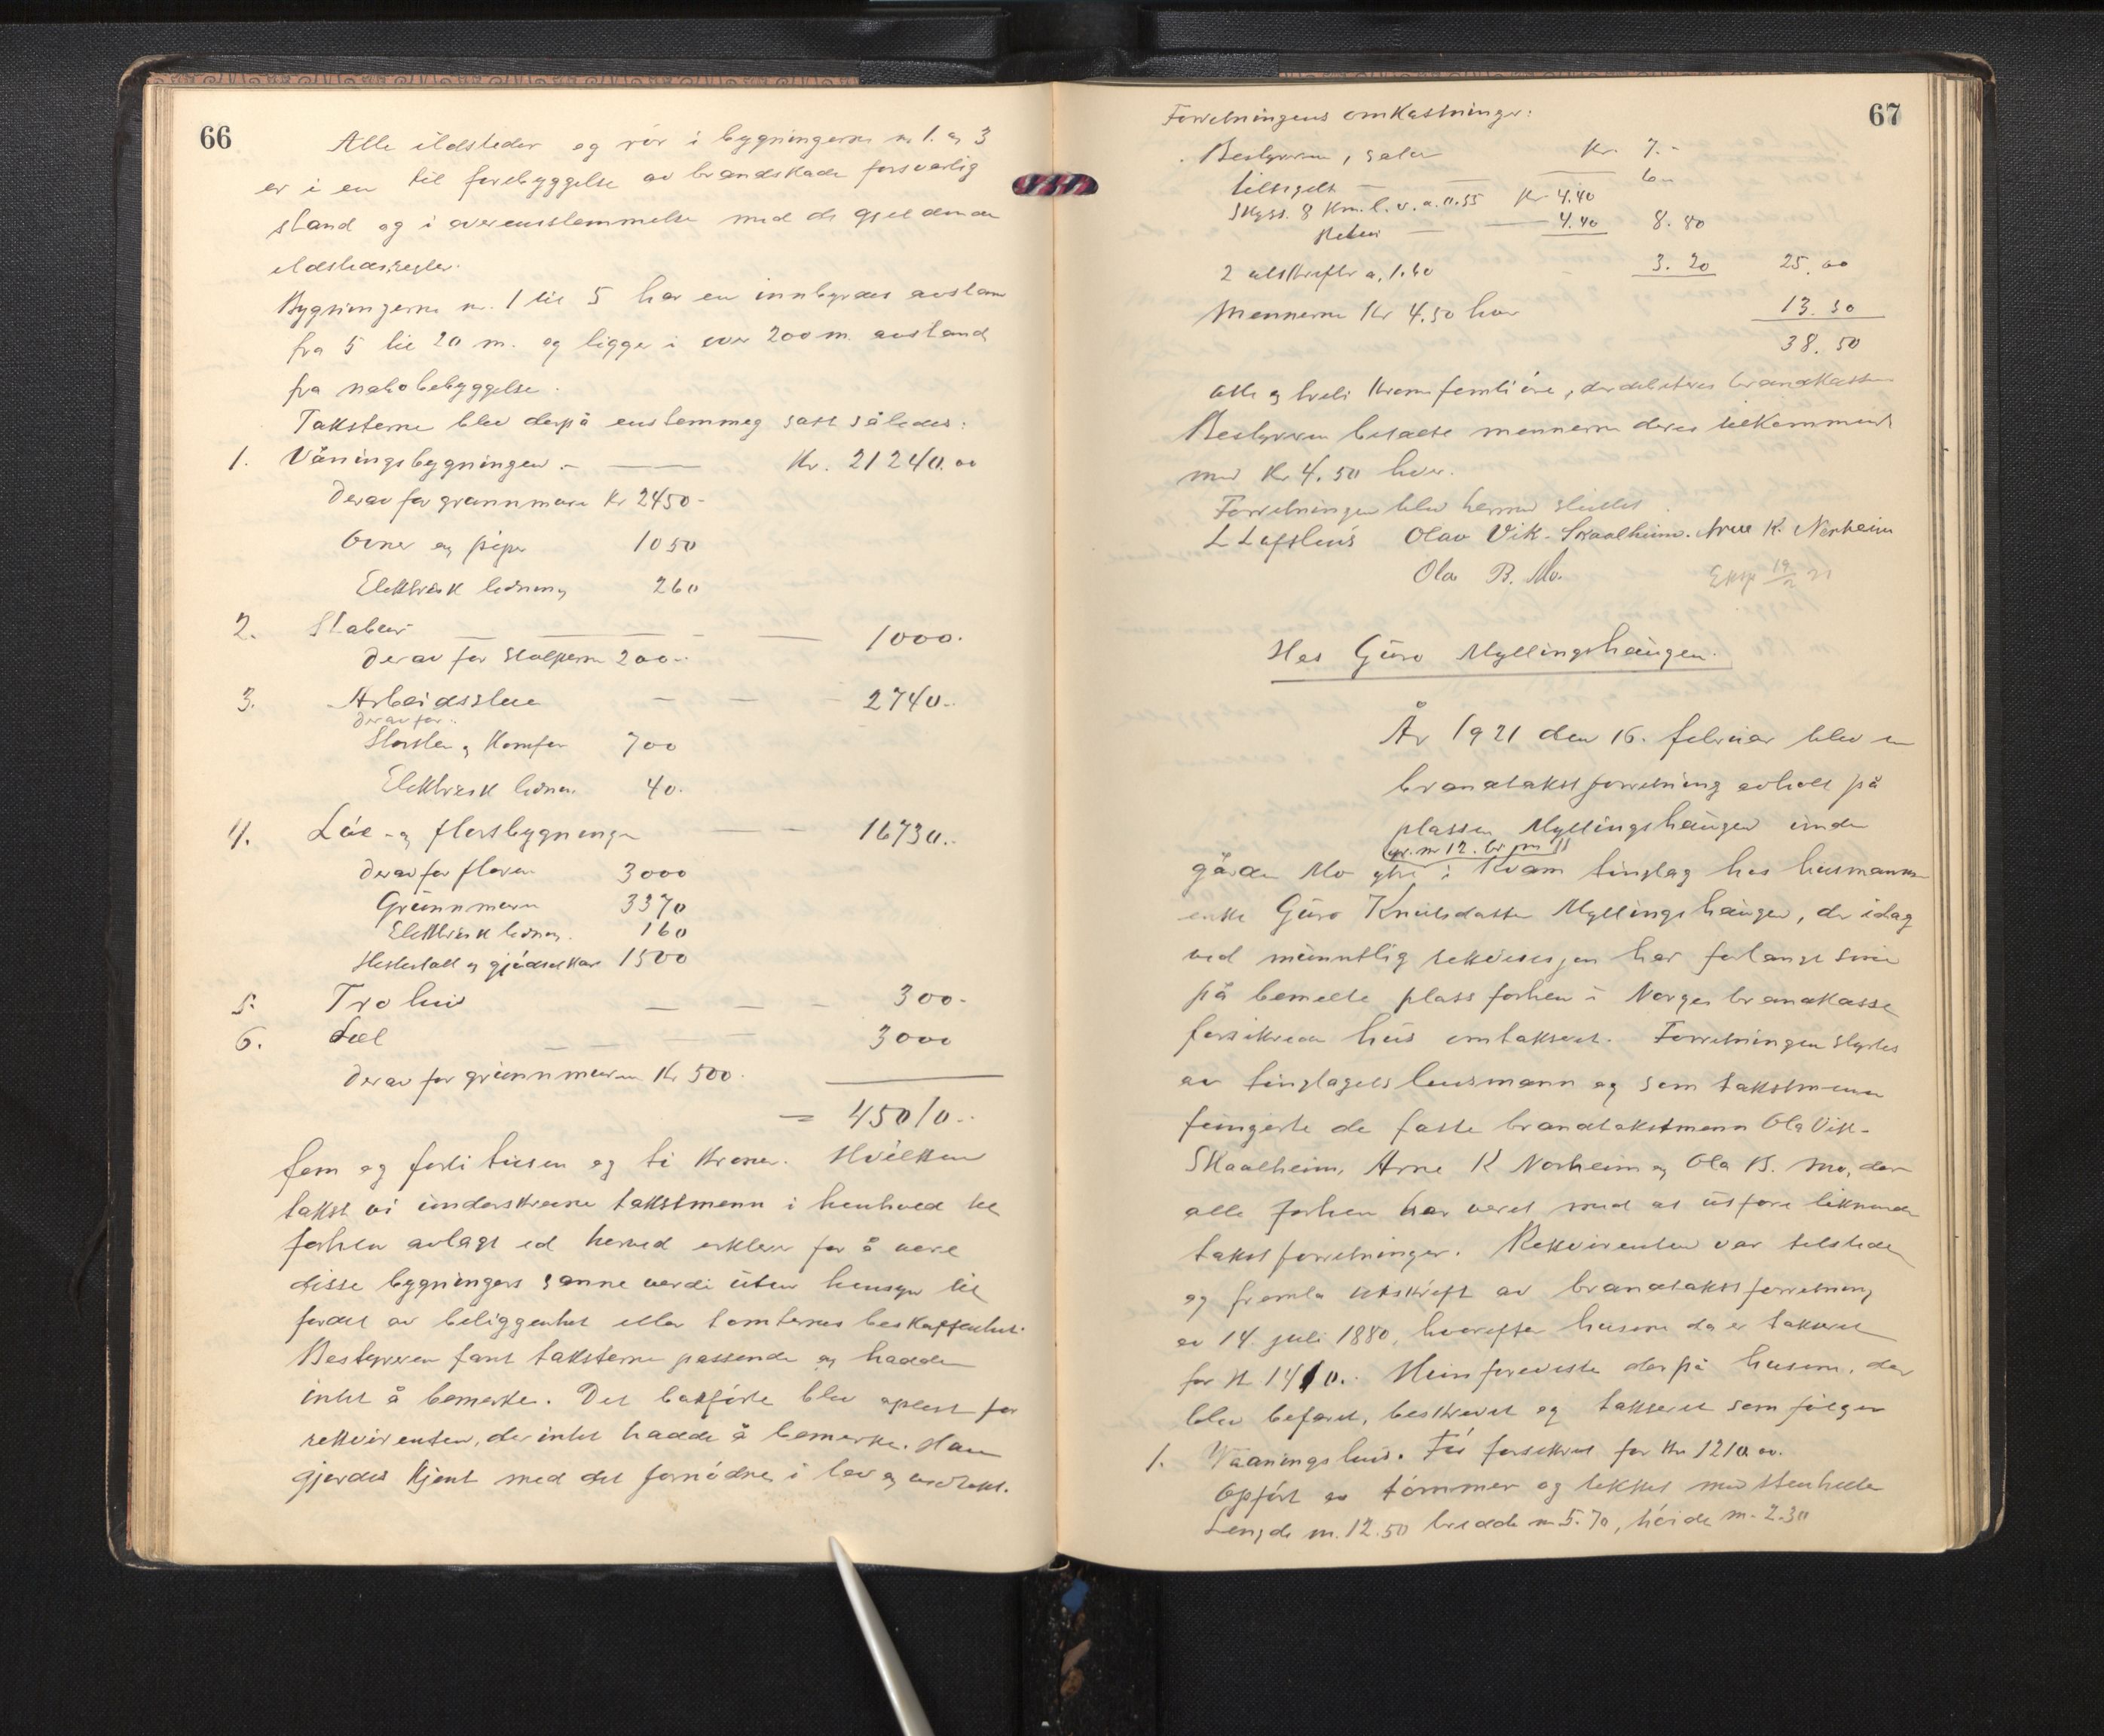 66
Alle ildsteder og rör i bygningerne nr 1. og 3
er i en til forebyggelse av brandskade forsvarlig
stand og i overensstemmelse med de gjeldende
ildstedsregler.
Bygningerne nr. 1 til 5 har en innbyrdes avstand
fra 5 til 20 m. og ligger i over 200 m. avstand
fra nabobebyggelse.
Taksterne blev derpå enstemmeg satt således:
1. Våningsbygningen. — Kr. 21240.00
Derav for grunnmure Kr 2450-
Ovner og piper 1050
Elektrisk ledning 260
2. Stabur — 1000.
Derav for stolperne 200..
3. Arbeidsstue — — 2740..
Derav for:
Skorsten og Komfur 700
Elektrisk ledn. 40.
4. Löe- og florsbygninge — — 16730..
Derav for floren 3000
Grunnmuren 3370
Elektrisk ledning. 160
Hestestall og gjödselkar 1500
5. Tro hus — — — 300-
6. Löe — — — 3000
Derav for grunnmuren Kr 500.
= 45010..
fem og forti tusen og ti Kroner. Hvilken
takst vi underskrevne takstmenn i henhold til
forhen avlagt ed herved erklerer for å vere
disse bygningers sanne verdi uten hensyn til
fordel av beliggenhet eller tomternes beskaffenhet.
Bestyreren fant taksterne passende og hadde
intet å bemerke. Det bokförte blev oplest for
rekvirenten, der intet hadde å bemerke. Han
gjordes kjent med det fornödne i lov og vedtekt.
67
Forretningens omkostninger:
Bestyreren, salær Kr. 7.-
tilsigelse — — 6 -
Skyss. 8 Km. l. v. a. 0.55 Kr 4.40
Retur — — 4.40 8.80
2 utskrifter a. 1.60 3.20 25.00
Mennerne Kr 4.50 hver 13.50
38.50
otte og treti Kroner femti öre, der debiteres brandkassen
Bestyreren betalte mennerne deres tilkommende
med Kr 4.50 hver.
Forretningen blev hermed sluttet.
L Lofthus Olav Vik-Skaalheim. Arne K. Norheim
Ola B. Mo.
Eksp 19/2 21
Hos Guro Myllingshaugen.
År 1921 den 16. februar blev en
brandtakstforretning avholt på
plassen Myllingshaugen under
gr. nr 12. br nr 11
gården Mo ytre i Kvam tinglag hos husmanns
enke Guro Knutsdatter Myllingshaugen, der idag
ved munntlig rekvisisjon har forlangt sine
på bemelte plass forhen i Norges brandkasse
forsikrede hus omtaksert. Forretningen styrtes
av tinglagets lensmann og som takstmenn
fungerte de faste brandtakstmenn Ola Vik-
Skaalheim, Arne K Norheim og Ola B. Mo, der
alle forhen har veret med at utföre liknende
takstforretninger. Rekvirenten var tilstede
og fremla utskrift av brandtakstforretning
av 14. juli 1880, hvorefter husene da er taksert
for Kr 1410.. Hun foreviste derpå husene, der
blev befaret, beskrevet og taksert som fölger
1. Vaaningshus. För forsikret for Kr 1210.00.
Opfört av tömmer og tekket med stenheller
Lengde m. 12.50 bredde m 5.70, höide m. 2.30